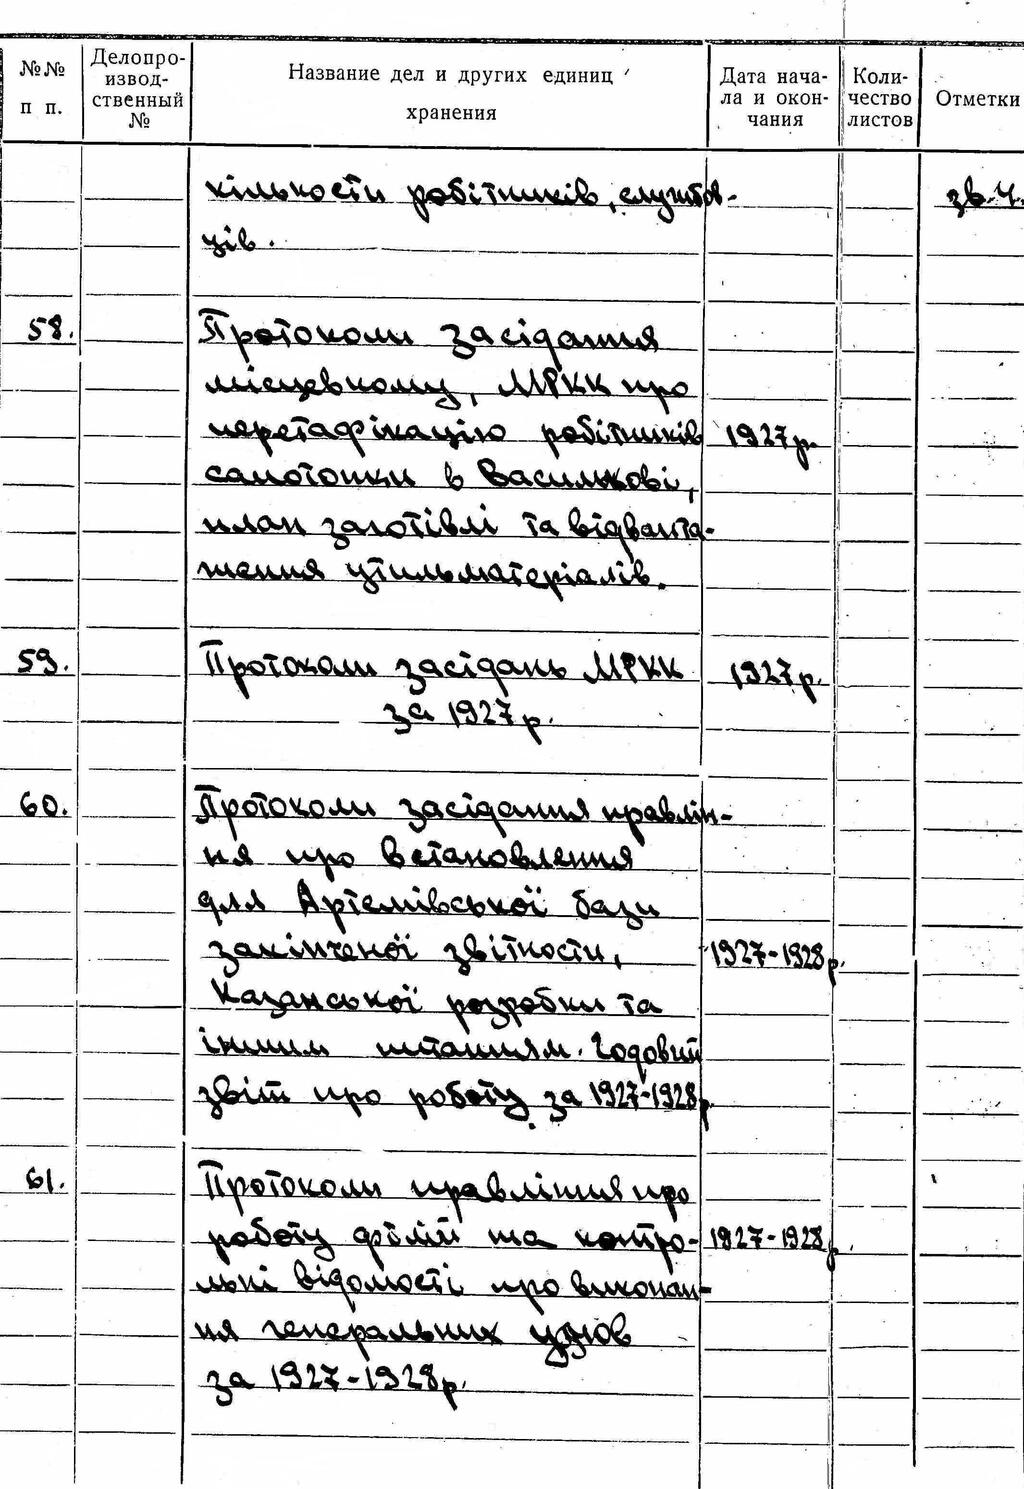 №№ п п.
Делопро-
извод-
ственный
№
Название дел и других единиц
хранения
Дата нача-
ла и окон-
чания
Коли-
чество
листов
Отметки
кількости робітників, службов- зв.ч.
ців.
58. Протоколи засідання
місцевкому, МРКК про
перетафікацію робітників 1927р.
салотопки в Василькові,
план заготівлі та відванта-
ження утильматеріалів.
59. Протоколи засідань МРКК 1927р.
за 1927р.
60. Протоколи засідання правлін-
ня про встановлення
для Артемівської бази
закінченої звітности, 1927-1928р.
Казанської розробки та
іншим питанням. Годовий
звіт про роботу за 1927-1928р
61. Протоколи правління про
роботу філій та контро- 1927-1928р.
льні відомості про виконан-
ня генеральних
за 1927-1928р.